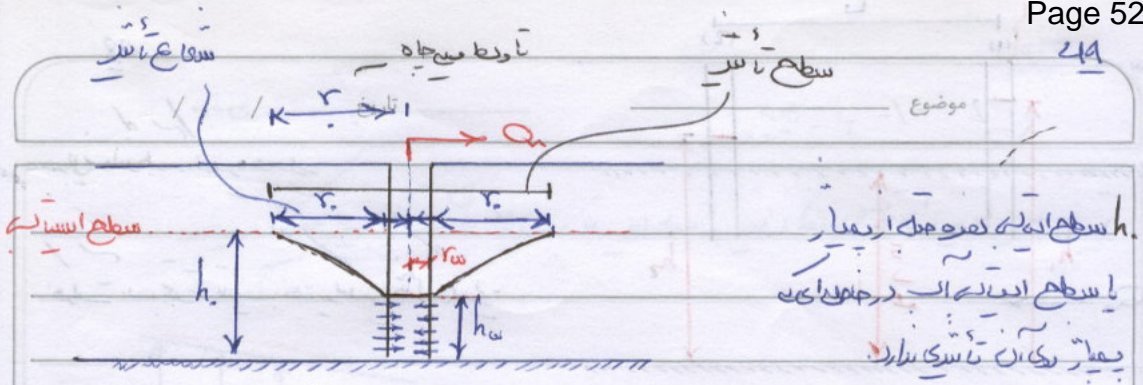 Page 52
49
شعاع تأثیر
تا وسط میله چاه
سطح تأثیر
موضوع
تاریخ / /
r.
Q
r.
r.
سطح ایستابی
rω
h.
hω
h. سطح ایستابی سفره قبل از پمپاژ
یا سطح ایستابی آب در فاصله‌ای که
پمپاژ روی آن تأثیری ندارد.